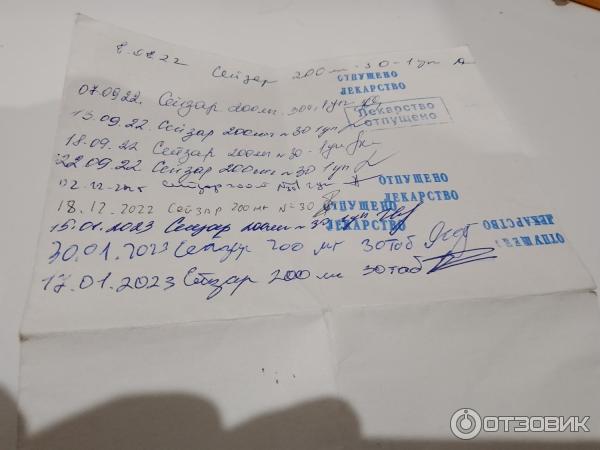 8.08.22 Сейзар 200мг. 30-1уп
ОТПУЩЕНО
ЛЕКАРСТВО
07.09.22. Сейзар 200мг. 30т. 1уп.
Лекарство
отпущено
13.09.22. Сейзар 200мг n 30 1уп
18.09.22 Сейзар 200мг n 30 - 1уп
22.09.22 Сейзар 200мг n 30 1уп
Сейзар
ОТПУЩЕНО
ЛЕКАРСТВО
18.12.2022 Сейзар 200 мг N-30
ОТПУЩЕНО
ЛЕКАРСТВО
15.01.2023 Сейзар 200мг n 30 1уп
30.01.2023 Сейзар 200 мг 30таб
ОТПУЩЕНО
ЛЕКАРСТВО
17.01.2023 Сейзар 200 мг 30таб
ОТЗОВИК